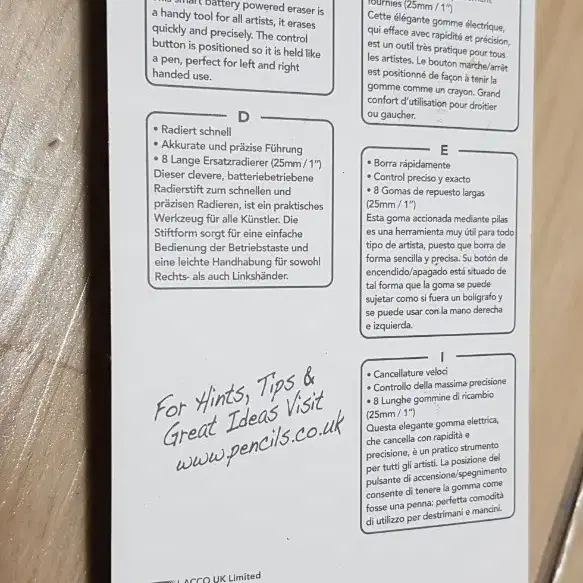 battery powered eraser is
a handy tool for all artists, it erases
quickly and precisely. The control
button is positioned so it is held like
a pen, perfect for left and right
handed use.
fournies (25mm / 1")
Cette élégante gomme électrique,
qui efface avec rapidité et précision,
est un outil très pratique pour tous
les artistes. Le bouton marche/arrêt
est positionné de façon à tenir la
gomme comme un crayon. Grand
confort d'utilisation pour droitier
ou gaucher.
D
• Radiert schnell
• Akkurate und präzise Führung
• 8 Lange Ersatzradierer (25mm / 1")
Dieser clevere, batteriebetriebene
Radierstift zum schnellen und
präzisen Radieren, ist ein praktisches
Werkzeug für alle Künstler. Die
Stiftform sorgt für eine einfache
Bedienung der Betriebstaste und
eine leichte Handhabung für sowohl
Rechts- als auch Linkshänder.
E
• Borra rápidamente
• Control preciso y exacto
• 8 Gomas de repuesto largas
(25mm / 1")
Esta goma accionada mediante pilas
es una herramienta muy útil para todo
tipo de artista, puesto que borra de
forma sencilla y precisa. Su botón de
encendido/apagado está situado de
tal forma que la goma se puede
sujetar como si fuera un bolígrafo y
se puede usar con la mano derecha
e izquierda.
I
• Cancellature veloci
• Controllo della massima precisione
• 8 Lunghe gommine di ricambio
(25mm / 1")
Questa elegante gomma elettrica,
che cancella con rapidità e
precisione, è un pratico strumento
per tutti gli artisti. La posizione del
pulsante di accensione/spegnimento
consente di tenere la gomma come
fosse una penna: perfetta comodità
di utilizzo per destrimani e mancini.
For Hints, Tips &
Great Ideas Visit
www.pencils.co.uk
ACCO UK Limited